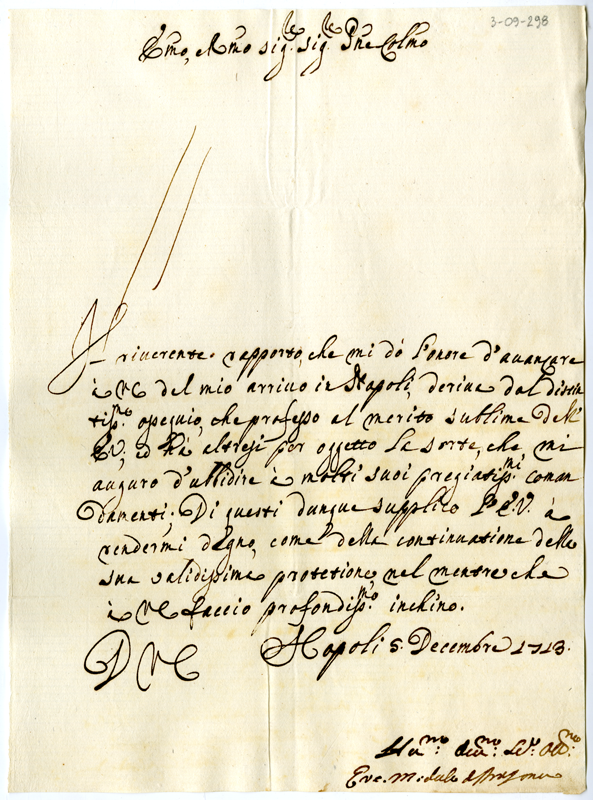 3-09-298
Emo, e Rmo sig.re sig.re Pne Colmo
Il riuerente rapporto, che mi dò l'onore d'auanzare
à VE del mio arriuo in Napoli, deriua dal distin
tiss.mo ossequio, che professo al merito sublime dell'
E.V; ed hà altresi per oggetto la sorte, che mi
auguro d'ubbidire à molti suoi pregiatiss.mi coman
damenti; Di questi dunque supplico l'E.V. à
rendermi degno, come della continuatione della
sua validissima protetione, nel mentre che
à VE faccio profondiss.mo inchino.
D VE Napoli 5. Decembre 1713.
Hu.mo deu.mo Se.r Obb.mo